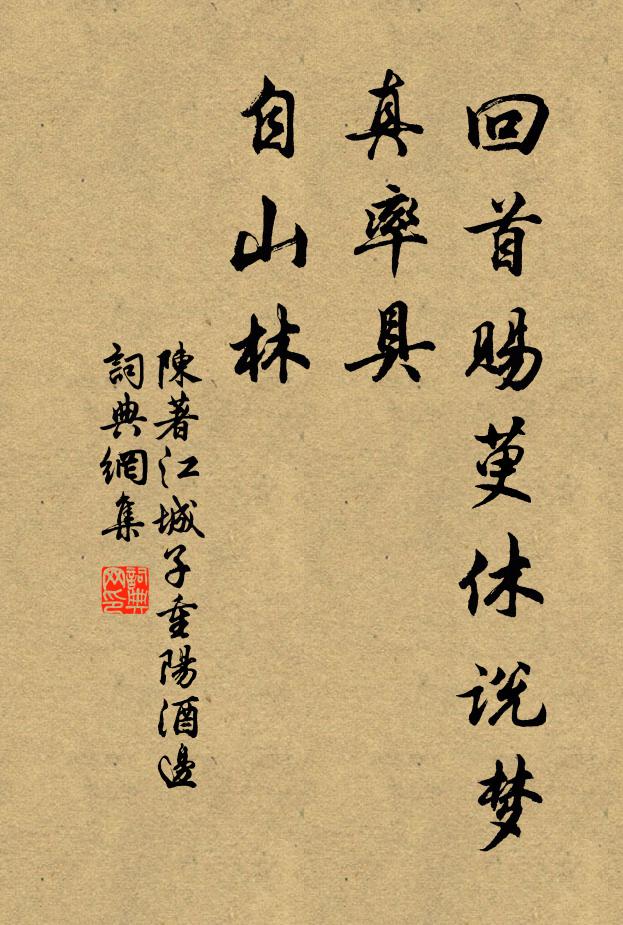 回首賜萸休说梦
真率具
自山林
陳著江城子重陽酒邊
詞典網集
詞典
网印